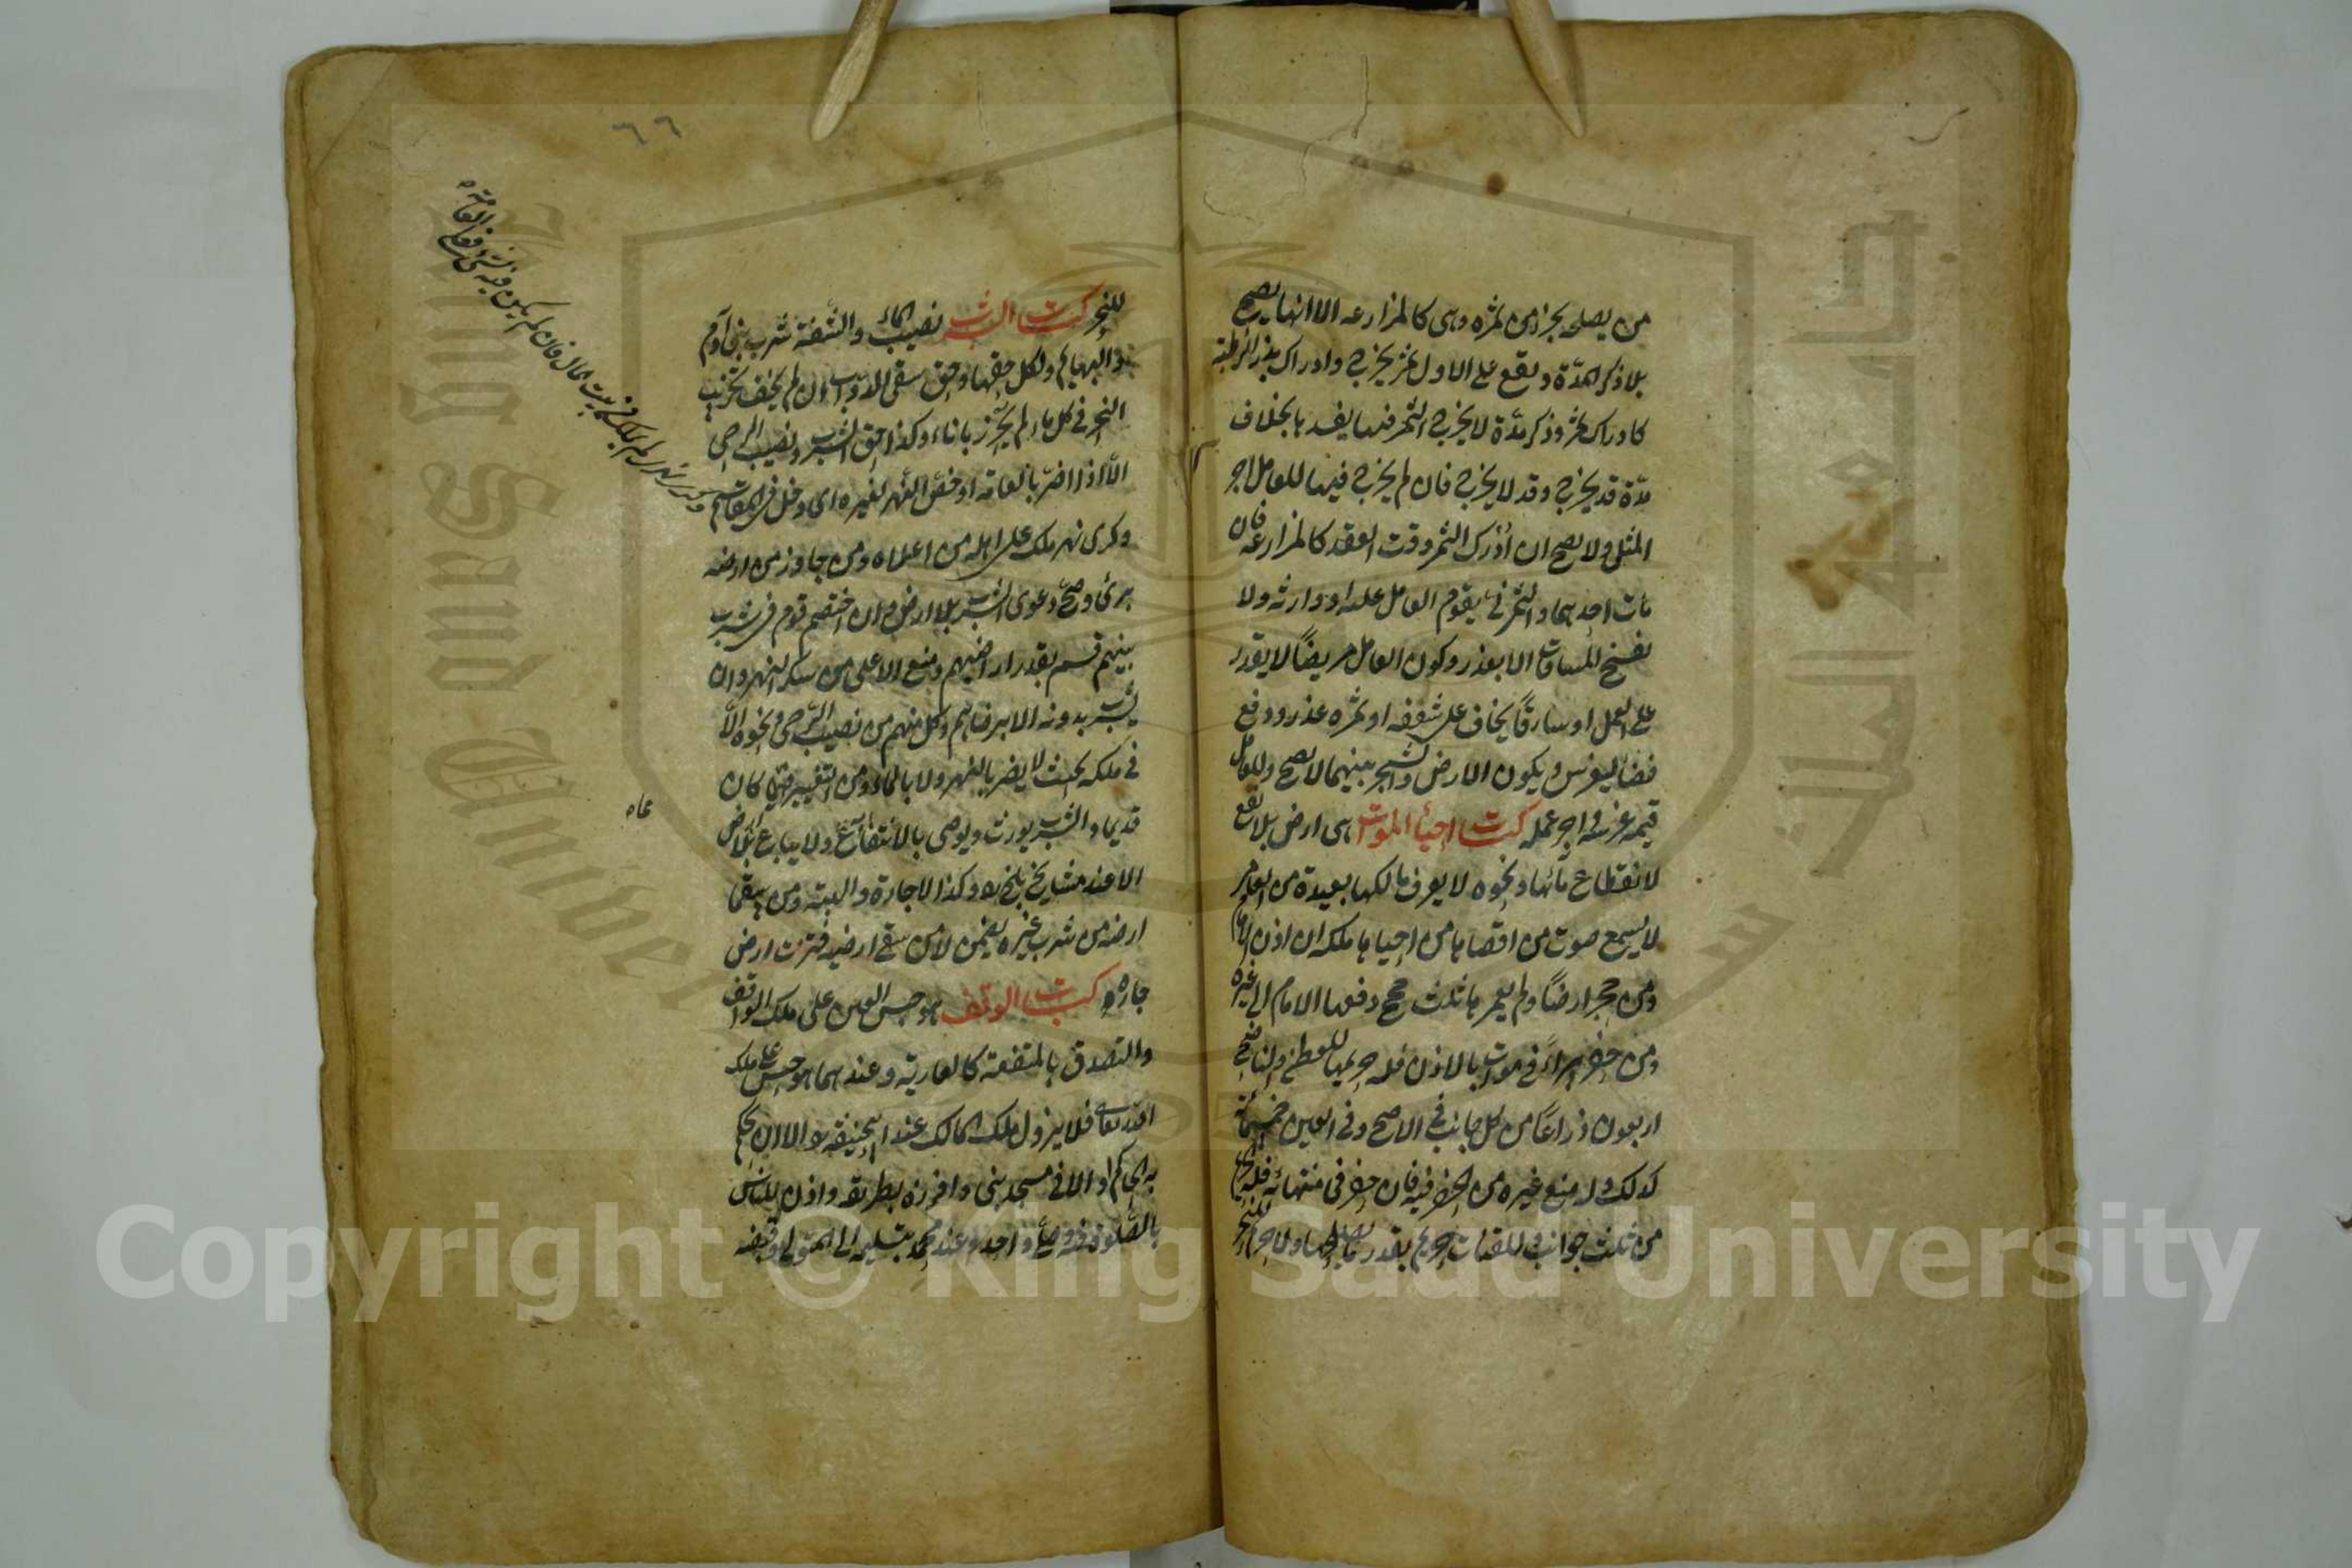 من يصلحه بجزء من ثمره وهى كالمزارعه الا انها يصح
بلا ذكر المدّة ويقع على الاول ثمر يخرج وادراك بذر الرطبة
كادراك ثمر وذكر مدّة لا يخرج الثمر فيها يفسدها بخلاف
مدّة قد يخرج وقد لا يخرج فان لم يخرج فيها للعامل اجر
المثل ولا يصح ان أدرك الثمر وقت العقد كالمزارعه فان
مات احدهما والثمر نئ يقوم العامل عليه او وارثه ولا
تفسخ المساقات الا بعذر وكون العامل مريضًا لا يقدر
على العمل او سارقًا يخاف على سعفه او ثمره عذر ودفع
فضاء ليغرس ويكون الارض والشجر بينهما لا يصح وللعامل
قيمه غرسه واجر عمله كتاب احياء الموات هى ارض بلا نفع
لانقطاع مائها ونحوه لا يعرف مالكها بعيدة من العامر
لا يسمع صوت من اقصاها من احياها ملكه ان اذن الامام
ومن حجر ارضًا ولم يعمرها ثلث حجج دفعها الامام الى غيره
ومن حفر بيرًا فى موات بالاذن فله حريمها للعطن والناضح
اربعون ذراعًا من كل جانب فى الاصح وفى العين خمسمائة
كذلك وله منع غيره من الحفر فيه فان حفر فى منتهائه فله الحريم
من ثلث جوانب وللقنات حريم بقدر ما يصلحها ولا حريم
للنهر كتاب الشرب نصيب الماء والشفة شرب بنى آدم
والبهايم ولكل حقها وحق سقى الدواب ان لم يخف تخريب
النهر فى كل ماء لم يحرز باناء وكذا حق الشرب ونصيب الرحى
الّا اذا اضرّ بالعامّه او خصّ النهر لغيره اى دخل فى المقاسم
وكرى نهر ملك على اهله من اعلاه ومن جاوز من ارضه
برئ وصحّ دعوى الشرب بلا ارض وان اختصم قوم فى شرب
بينهم قسم بقدر اراضيهم ومنع الاعلى من سكر النهر وان
يشرب بدونه الا برضاهم وكل منهم من نصيب الرحى ونحوه الّا
فى ملكه بحيث لا يضر بالنهر ولا بالماء ومن التغيير عمّا كان
قديما والشرب يورث ويوصى بالانتفاع ولا يباع بلا ارض
الا عند مشايخ بلخ وكذا الاجارة والهبة ومن سقى
ارضه من شرب غيره يضمن لا من سقى ارضه فنزت ارض
جاره كتاب الوقف هو حبس العين على ملك الواقف
والتصدق بالمنفعة كالعارية وعندهما هو حبس على ملك
الله تعالى فلا يزول ملك المالك عند ابيحنيفه الا ان يحكم
به الحاكم او الا فى مسجد بنى وافرزه بطريقه واذن للناس
بالصلوة فيه وصلّى واحد وعند محمّد بتسليمه الى المتولى وقبضه
٦٦